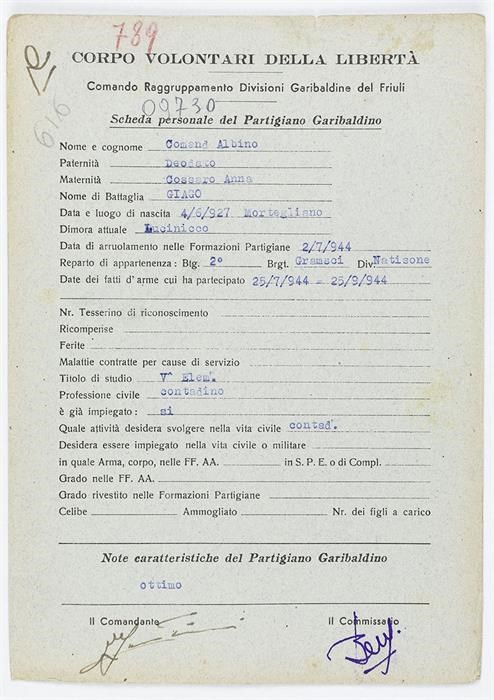 789
CORPO VOLONTARI DELLA LIBERTÀ
Comando Raggruppamento Divisioni Garibaldine del Friuli
09730
616
Scheda personale del Partigiano Garibaldino
Nome e cognome Comand Albino
Paternità Deodato
Maternità Cossaro Anna
Nome di Battaglia GIAGO
Data e luogo di nascita 4/6/927 Mortegliano
Dimora attuale Lucinicco
Data di arruolamento nelle Formazioni Partigiane 2/7/944
Reparto di appartenenza: Btg. 2° Brgt. Gramsci Div. Natisone
Date dei fatti d'arme cui ha partecipato 25/7/944 = 25/9/944
Nr. Tesserino di riconoscimento
Ricompense
Ferite
Malattie contratte per cause di servizio
Titolo di studio V^ Elem.
Professione civile contadino
è già impiegato: si
Quale attività desidera svolgere nella vita civile contad.
Desidera essere impiegato nella vita civile o militare
in quale Arma, corpo, nelle FF. AA. in S. P. E. o di Compl.
Grado nelle FF. AA.
Grado rivestito nelle Formazioni Partigiane
Celibe Ammogliato Nr. dei figli a carico
Note caratteristiche del Partigiano Garibaldino
ottimo
Il Comandante Il Commissario